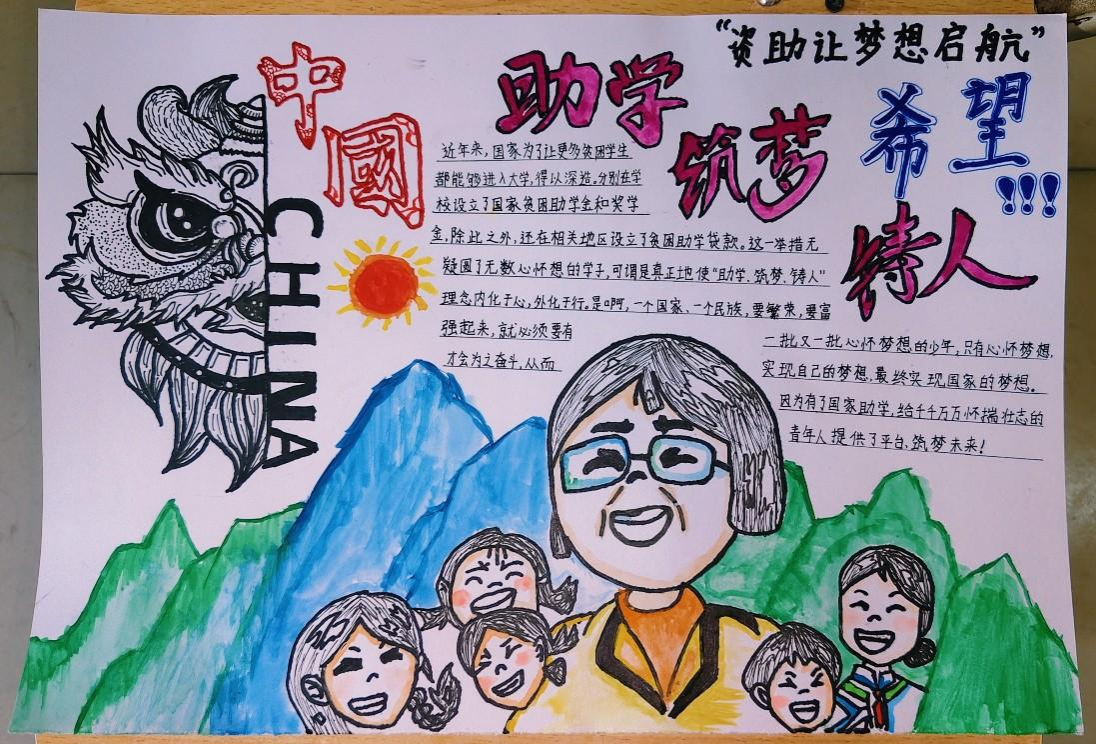 “资助让梦想启航”
中國
CHINA
助学
筑梦
铸人
希望!!!
近年来,国家为了让更多贫困学生
都能够进入大学,得以深造,分别在学
校设立了国家贫困助学金和奖学
金,除此之外,还在相关地区设立了贫困助学贷款。这一举措无
疑圆了无数心怀想的学子,可谓是真正地使“助学、筑梦、铸人”
理念内化于心,外化于行。是啊,一个国家、一个民族,要繁荣,要富
强起来,就必须要有
一批又一批心怀梦想的少年,只有心怀梦想,
才会为之奋斗,从而
实现自己的梦想,最终实现国家的梦想。
因为有了国家助学,给千千万万怀揣壮志的
青年人提供了平台,筑梦未来!